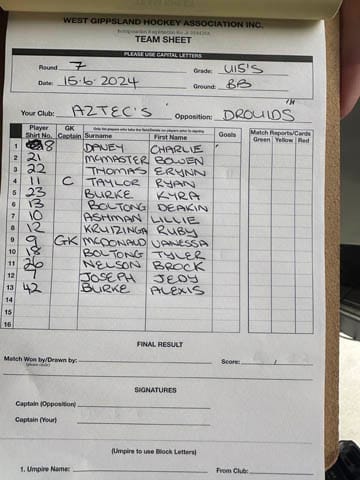 WEST GIPPSLAND HOCKEY ASSOCIATION INC.
TEAM SHEET
PLEASE USE CAPITAL LETTERS
Round 7 Grade: U15'S
Date: 15.6.2024 Ground: BB
Your Club: AZTEC'S Opposition: DROUIDS
Player Shirt No. GK Captain Surname First Name Goals Match Reports/Cards Green Yellow Red
1 8 DAVEY CHARLIE
2 21 MCMASTER BOWEN
3 22 THOMAS ERYNN
4 11 C TAYLOR RYAN
5 23 BURKE KYRA
6 13 BOLTONG DEAKIN
7 10 ASHMAN LILLIE
8 12 KRUIZINGA RUBY
9 9 GK MCDONALD VANESSA
10 18 BOLTONG TYLER
11 26 NELSON BROCK
12 7 JOSEPH JEDY
13 42 BURKE ALEXIS
14
15
16
FINAL RESULT
Match Won by/Drawn by: Score: /
SIGNATURES
Captain (Opposition)
Captain (Your)
(Umpire to use Block Letters)
1. Umpire Name: From Club: